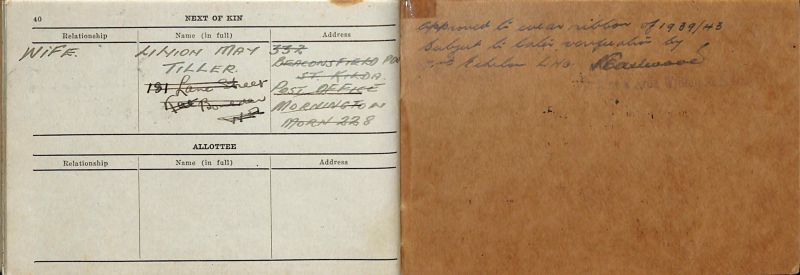 40 NEXT OF KIN
Relationship Name (in full) Address
WIFE. LINION MAY 332
TILLER. BEACONSFIELD PDE
191 Lane Street ST. KILDA.
POST OFFICE
MORNINGTON
MORN 228
ALLOTTEE
Relationship Name (in full) Address
Approved to wear ribbon of 1939/43
Subject to later verification by